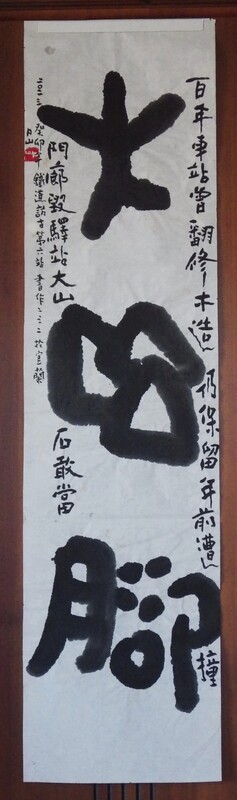 百年車站曾翻修木造仍保留年前遭撞
大山腳
門廊毀驛站大山石敢當
癸卯年鐵道詩書第六站書作二三二於宜蘭